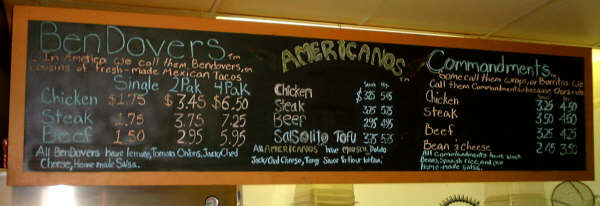 BenDovers TM
In America we call them Bendovers, our
cousins of fresh-made Mexican Tacos
Single 2Pak 4Pak
Chicken $1.75 $3.45 $6.50
Steak 1.75 3.75 7.25
Beef 1.50 2.95 5.95
All BenDovers have lettuce, Tomato Onions, Jack/Ched
Cheese, Home made Salsa.
AMERICANOS TM
Chicken
Steak
Beef
Salsalito Tofu
All AMERICANOS have
Jack/Ched Cheese, Tang Sauce
Commandments TM
Some call them wraps, or Burritos. We
Call them Commandments because
Chicken 3.25 4.50
Steak 3.50 4.50
Beef 3.25 4.25
Bean & Cheese 2.75 3.50
All Commandments have black
Beans, Spanish rice, and our
Home-made Salsa.